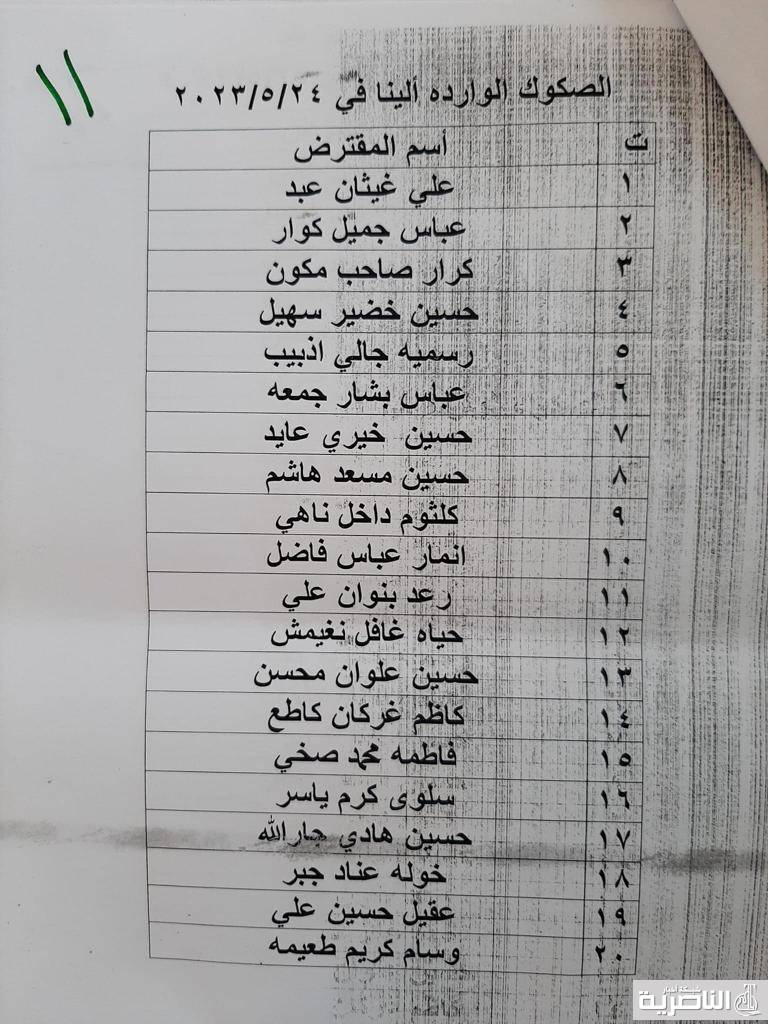 ١١
الصكوك الوارده ألينا في ٢٠٢٣/٥/٢٤
ت أسم المقترض
١ علي غيثان عبد
٢ عباس جميل كوار
٣ كرار صاحب مكون
٤ حسين خضير سهيل
٥ رسميه جالي اذبيب
٦ عباس بشار جمعه
٧ حسين خيري عايد
٨ حسين مسعد هاشم
٩ كلثوم داخل ناهي
١٠ انمار عباس فاضل
١١ رعد بنوان علي
١٢ حياه غافل نغيمش
١٣ حسين علوان محسن
١٤ كاظم غركان كاطع
١٥ فاطمه محمد صخي
١٦ سلوى كرم ياسر
١٧ حسين هادي جارالله
١٨ خوله عناد جبر
١٩ عقيل حسين علي
٢٠ وسام كريم طعيمه
شبكة أخبار
الناصرية